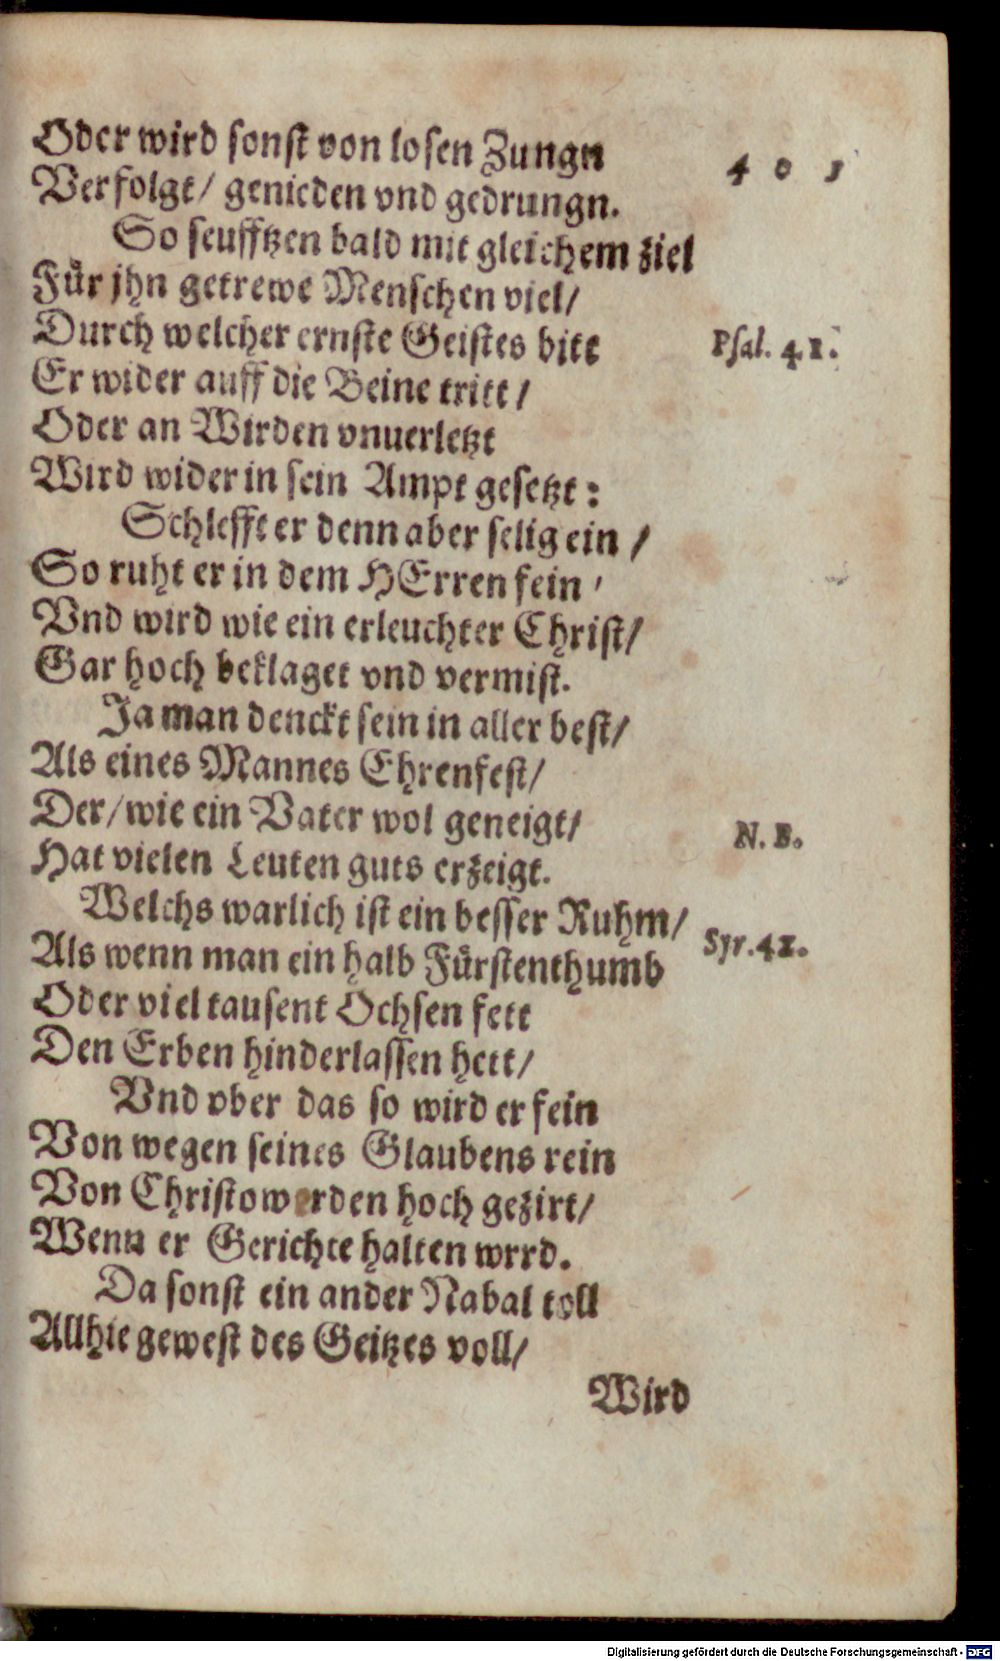 Oder wird sonst von losen Zungn
4 0 1
Verfolgt/ genieden vnd gedrungn.
So seufftzen bald mit gleichem ziel
Für jhn getrewe Menschen viel/
Durch welcher ernste Geistes bitt
Psal. 41.
Er wider auff die Beine tritt/
Oder an Wirden vnuerletzt
Wird wider in sein Ampt gesetzt:
Schlefft er denn aber selig ein/
So ruht er in dem HErren fein/
Vnd wird wie ein erleuchter Christ/
Gar hoch beklaget vnd vermist.
Ja man denckt sein in aller best/
Als eines Mannes Ehrenfest/
Der/ wie ein Vater wol geneigt/
N. B.
Hat vielen Leuten guts erzeigt.
Welchs warlich ist ein besser Ruhm/
Syr. 41.
Als wenn man ein halb Fürstenthumb
Oder viel tausent Ochsen fett
Den Erben hinderlassen hett/
Vnd vber das so wird er fein
Von wegen seines Glaubens rein
Von Christo werden hoch gezirt/
Wenn er Gerichte halten wrrd.
Da sonst ein ander Nabal toll
Allhie gewest des Geitzes voll/
Wird
Digitalisierung gefördert durch die Deutsche Forschungsgemeinschaft - DFG